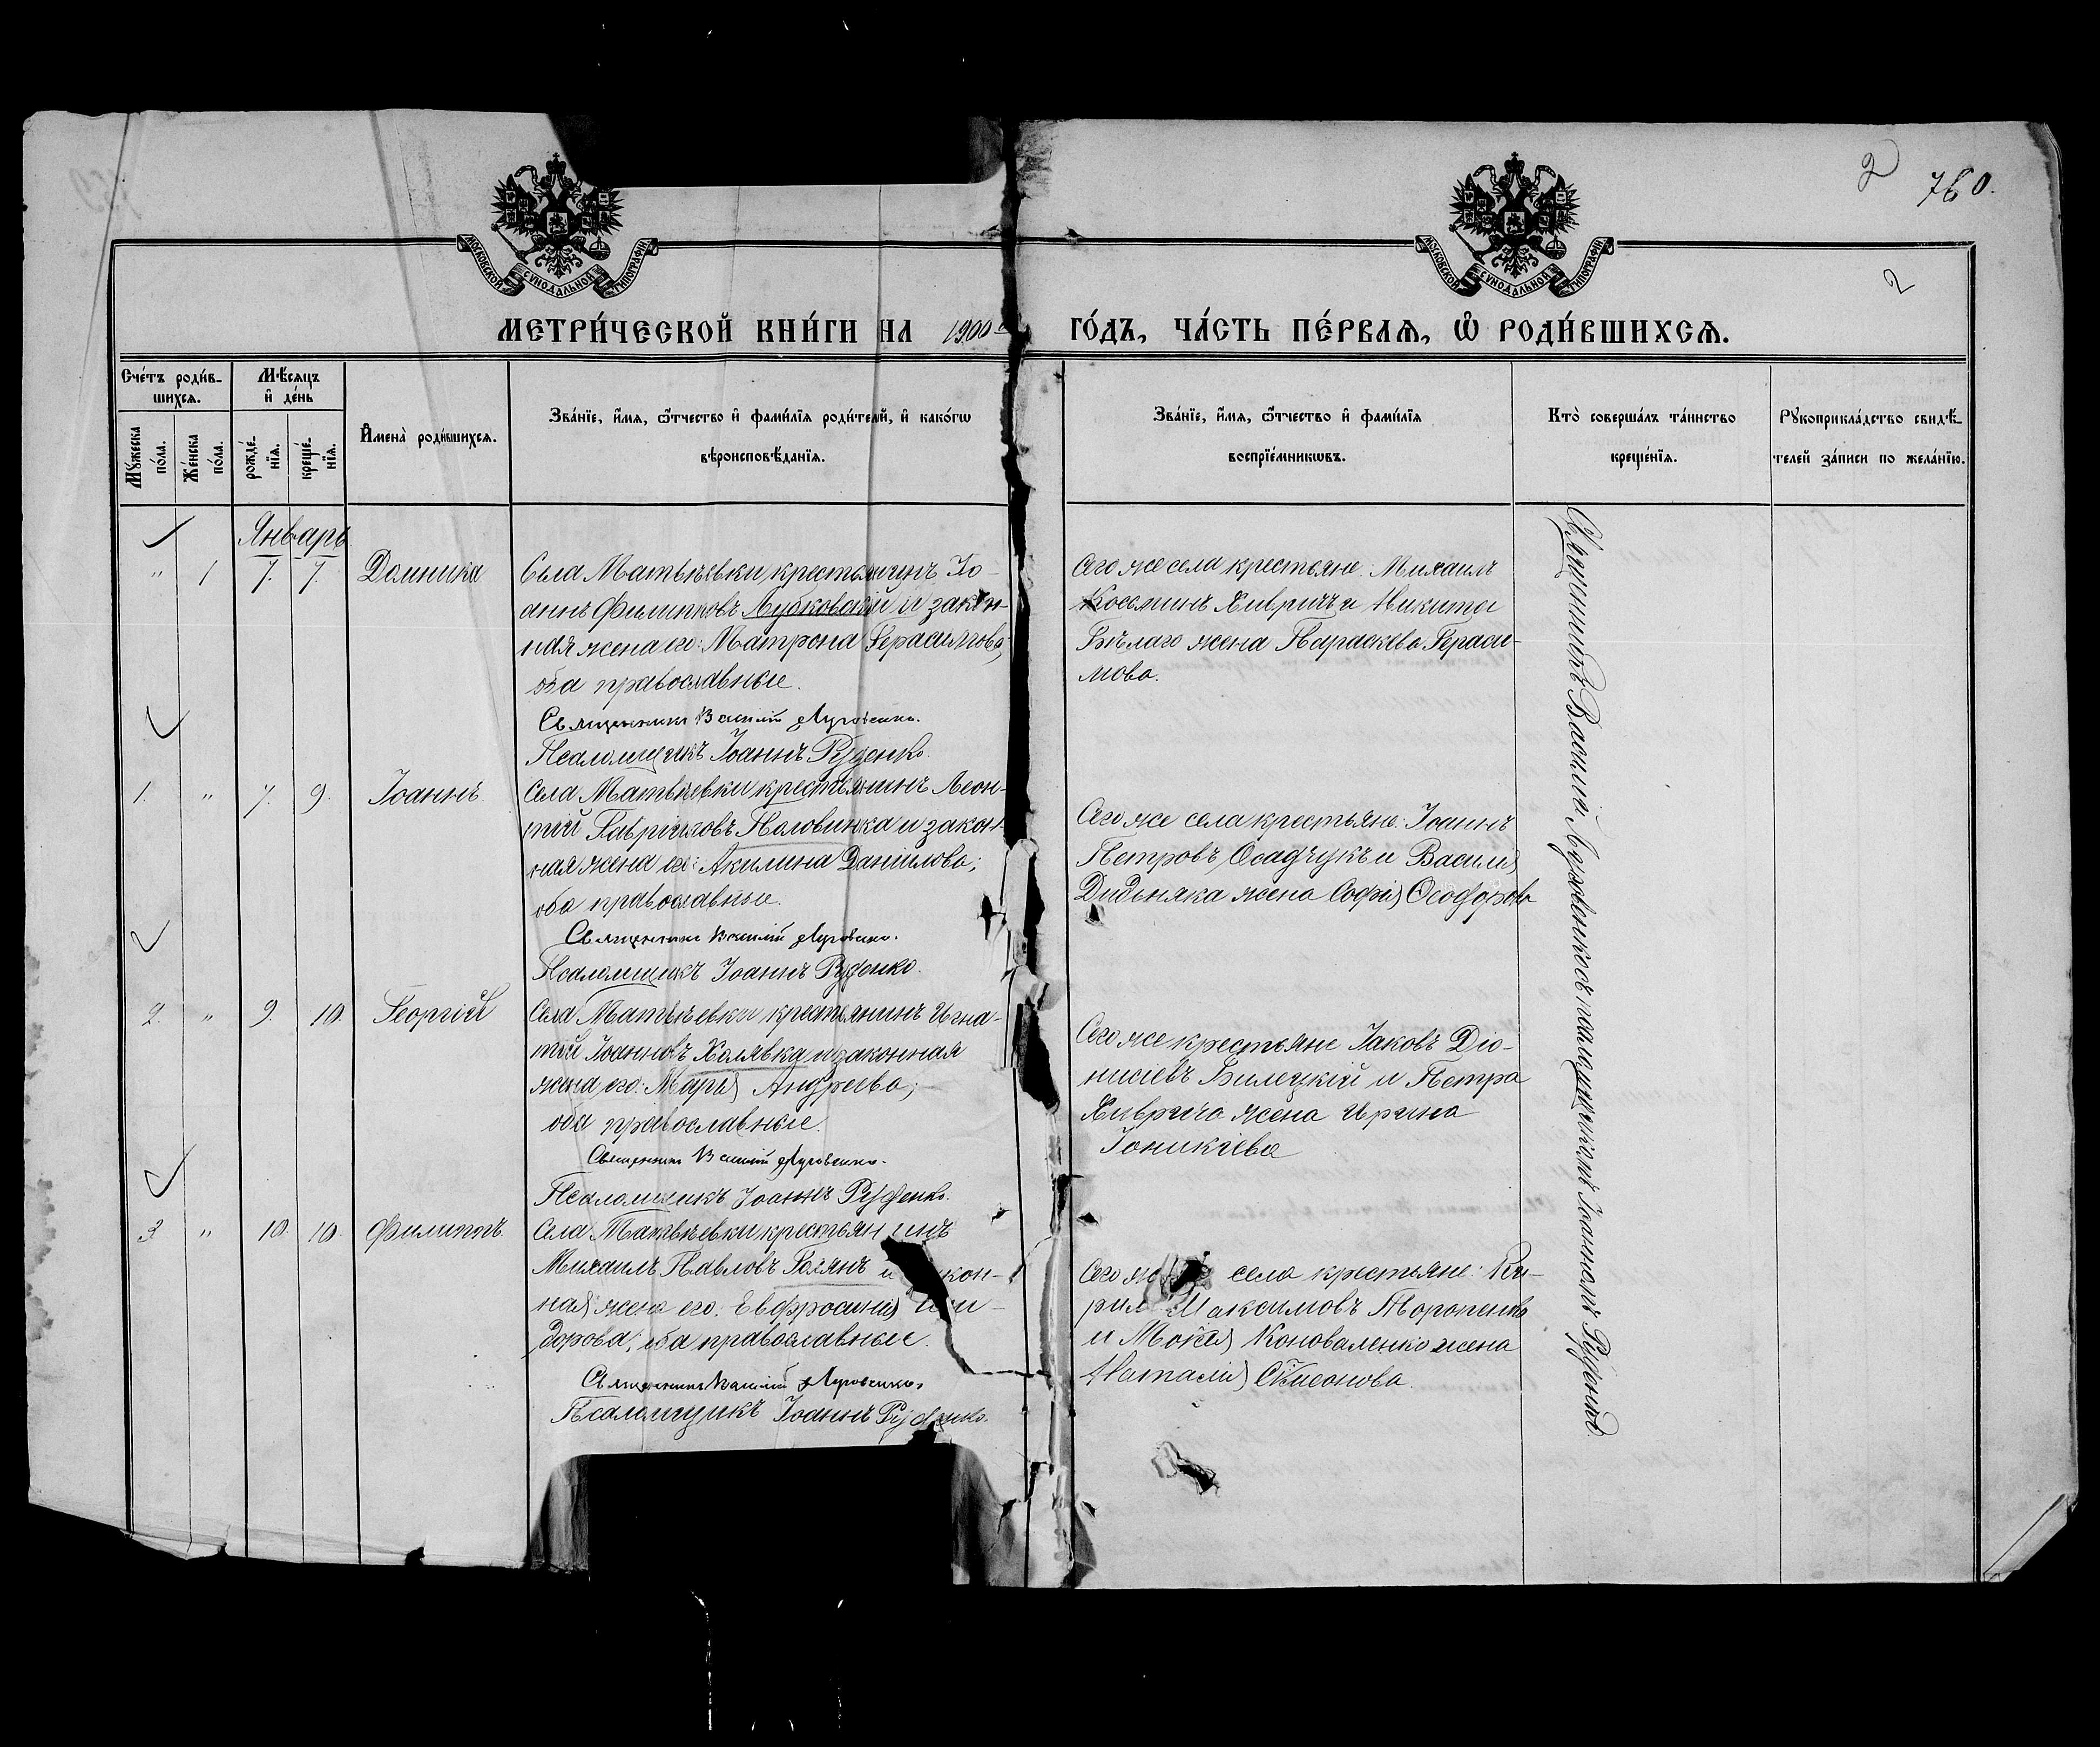 2 760.
МОСКОВСКОЙ СѴНОДАЛЬНОЙ ТИПОГРАФІИ
МОСКОВСКОЙ СѴНОДАЛЬНОЙ ТИПОГРАФІИ
2
МЕТРИ́ЧЕСКОЙ КНИ́ГИ НА 1900 ГО́ДЪ, ЧА́СТЬ ПЕ́РВАѦ, Ѡ҆ РОДИ́ВШИХСѦ.
Сче́тъ роди́в-
шихсѧ.
Мѣ́сѧцъ
и҆ де́нь
Мꙋ́жеска
по́ла.
Же́нска
по́ла.
рожде́-
нїѧ.
креще́-
нїѧ.
И҆мена̀ роди́вшихсѧ.
Зва́нїе, и҆́мѧ, ѻ҆́тчество и҆ фами́лїѧ роди́телй, и҆ како́гѡ
вѣроисповѣ́данїѧ.
Зва́нїе, и҆́мѧ, ѻ҆́тчество и҆ фами́лїѧ
воспрїе́мникѡвъ.
Кто̀ соверша́лъ та́инство
креще́нїѧ.
Рꙋкоприкла́дство свидѣ́-
телей за́писи по жела́нїю.
Январь
" 1 7. 7. Домника
Села Матвѣевки крестьянинъ Іо-
аннъ Филипповъ Лубковскій и закон-
ная жена его: Матрона Герасимова,
оба православные.
Священникъ Василій Лузовенко.
Псаломщикъ Іоаннъ Руденко.
Сего же села крестьяне: Михаилъ
Косьминъ Хивричъ и Никиты
Бѣлаго жена Параскева Гераси-
мова.
1. " 7. 9. Іоаннъ.
Села Матвѣевки крестьянинъ Леон-
тій Гавріиловъ Половинка и закон-
ная жена его: Акилина Даніилова;
оба православные.
Священникъ Василій Лузовенко.
Псаломщикъ Іоаннъ Руденко.
Сего же села крестьяне: Іоаннъ
Петровъ Осадчукъ и Василія
Дидыняка жена Софія Ѳеодорова
2. " 9. 10. Георгій
Села Матвѣевки крестьянинъ Игна-
тій Іоанновъ Халявка и законная
жена его: Марія Андреева;
оба православные.
Священникъ Василій Лузовенко.
Псаломщикъ Іоаннъ Руденко.
Сего же крестьяне Іаковъ Діо-
нисіевъ Билецкій и Петра
Хиврича жена Ирина
Іоникіева
3 " 10. 10. Филиппъ.
Села Матвѣевки крестьянинъ
Михаилъ Павловъ и кон-
ная жена его: Евфросинія
дорова; оба православные.
Священникъ Василій Лузовенко.
Псаломщикъ Іоаннъ Руденко.
Сего села крестьяне: Ки-
рилъ Максимовъ Торопенко
и Мокія Коноваленко жена
Наталія
Священникъ Василій Лузовенко съ псаломщикомъ Іоанномъ Руденко